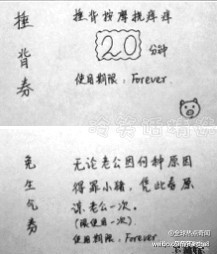 捶背券
捶背按摩挠痒痒
20分钟
使用期限：Forever.
免生气券
无论老公因何种原因
得罪小猪，凭此券原
谅老公一次。
（限使用一次）
使用期限：Forever
@全球热点奇闻